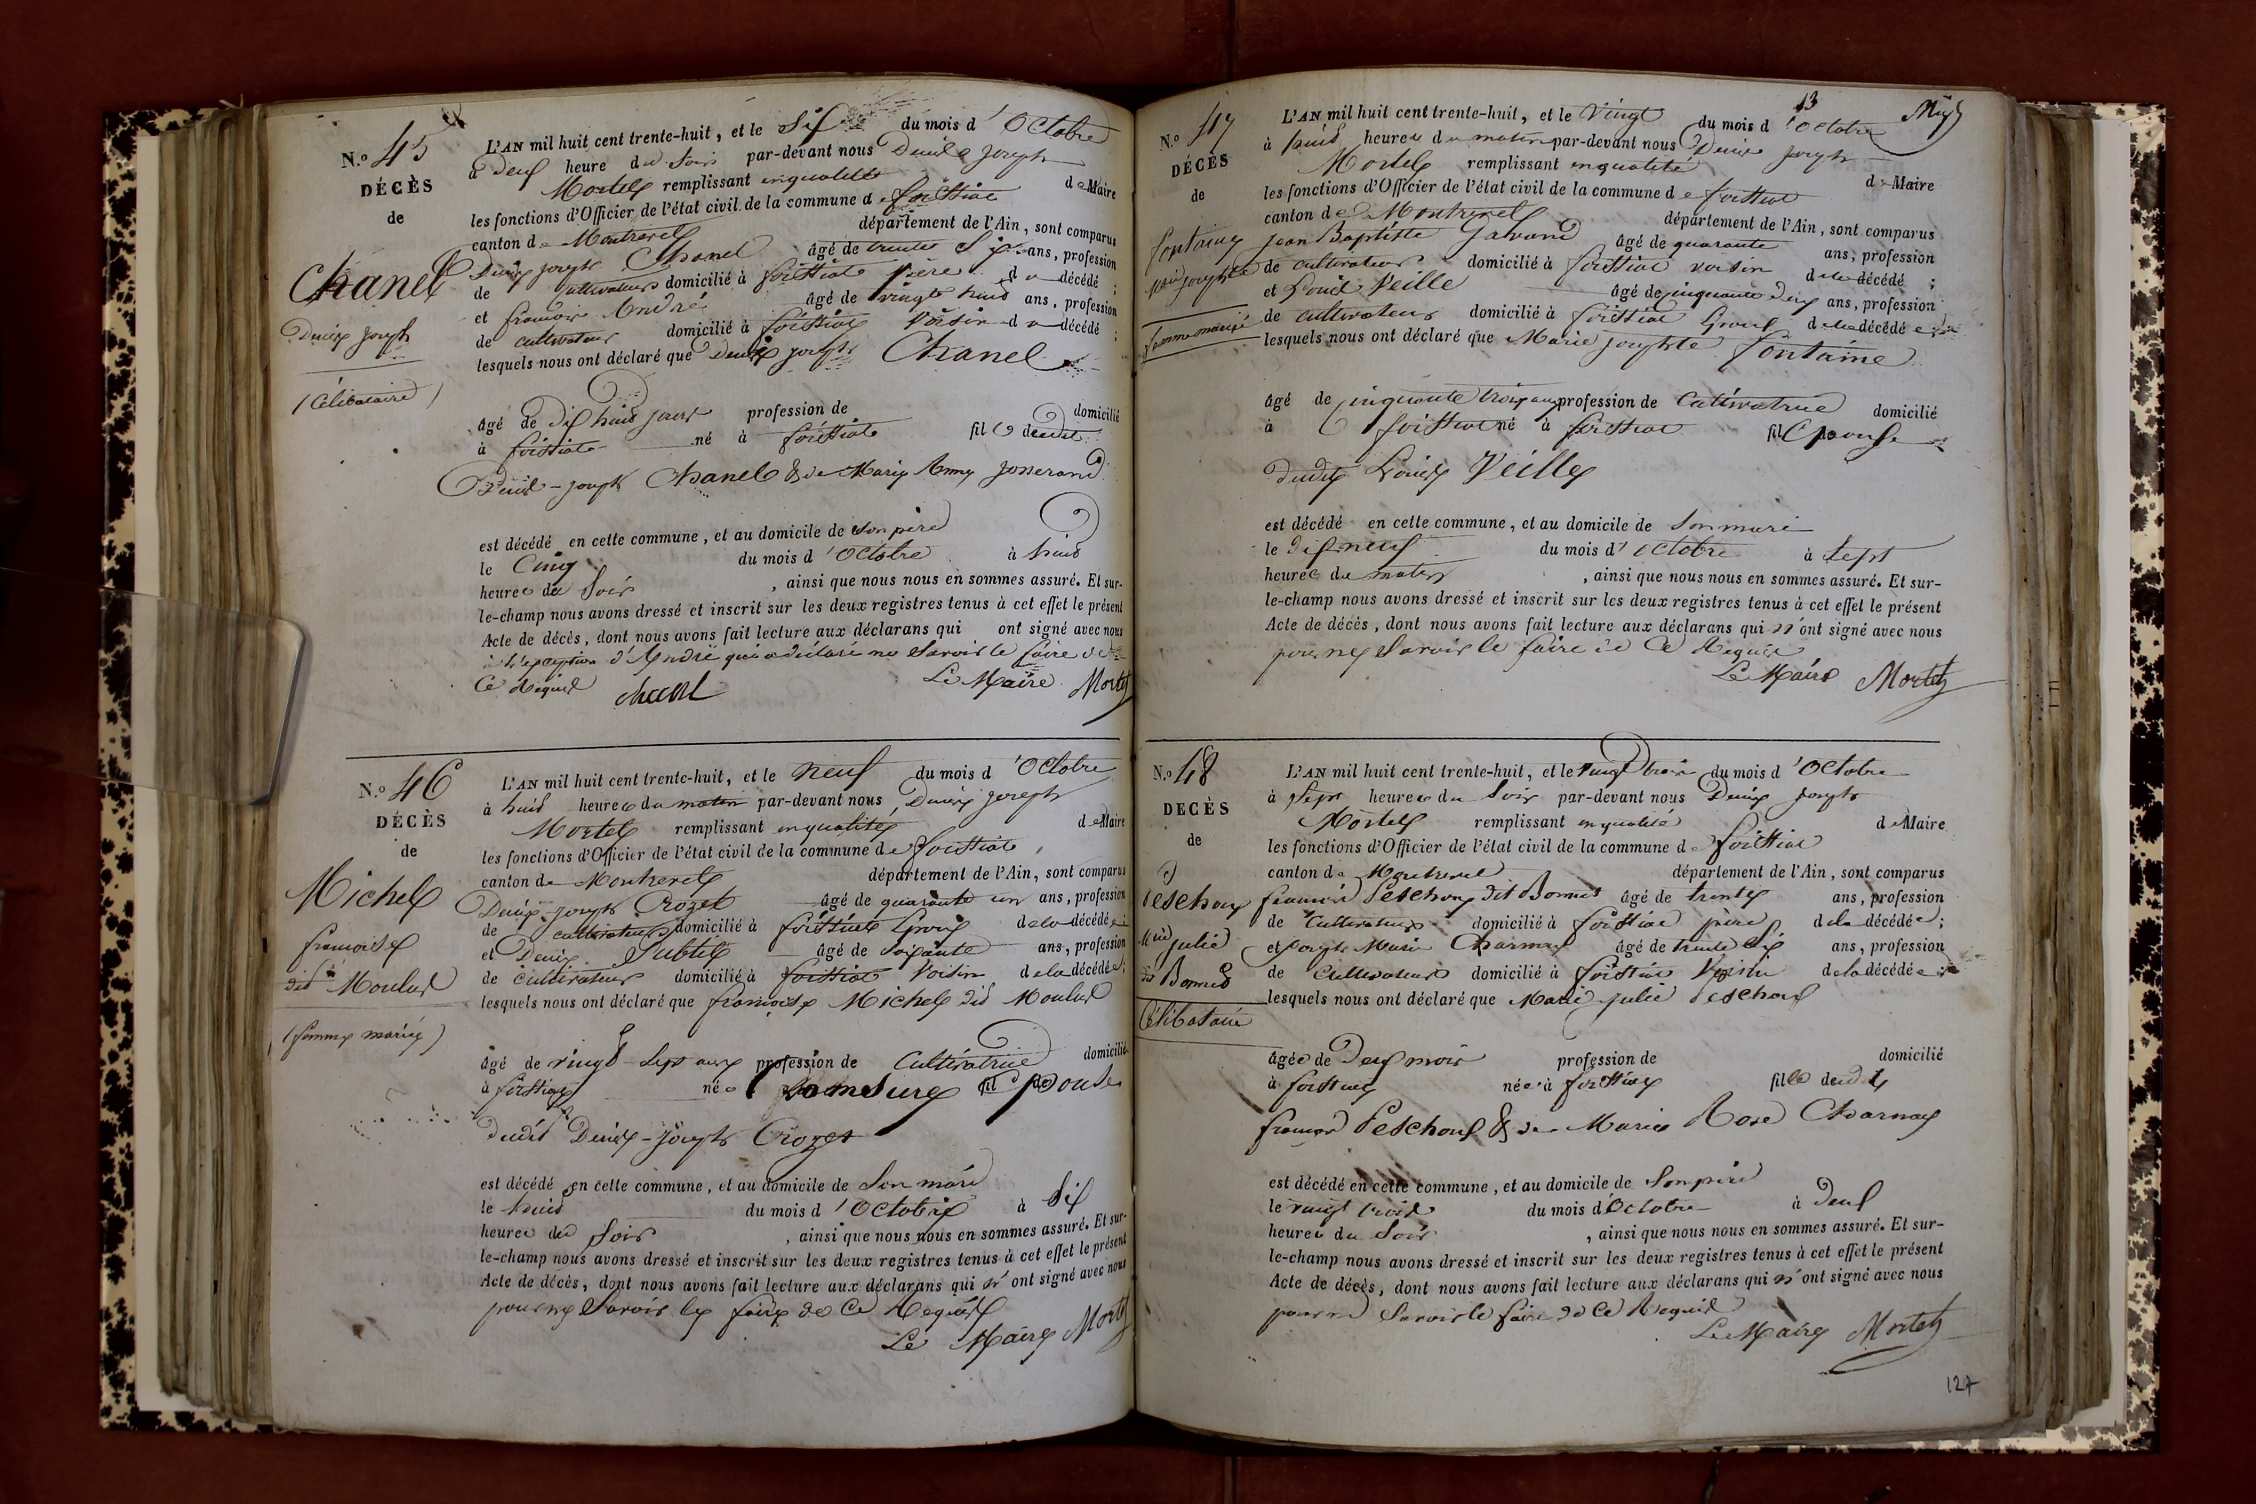 N.º 45
DÉCÈS
de
Chanel
Denis Joseph
(Célibataire)
L'AN mil huit cent trente-huit, et le Six du mois d'Octobre
à Deux heure du Soir par-devant nous Denis Joseph
Mortel remplissant en qualité de Maire
les fonctions d'Officier de l'état civil de la commune de foissiat
canton de Montrevel département de l'Ain, sont comparus
Denis Joseph Chanel âgé de trente Six ans, profession
de cultivateur domicilié à foissiat Père du décédé ;
et françois André âgé de vingt huit ans, profession
de cultivateur domicilié à foissiat Voisin du décédé ;
lesquels nous ont déclaré que Denis joseph Chanel
âgé de Dix huit jours profession de domicilié
à foissiat né à foissiat fils dudit
Denis-joseph Chanel & de Marie Anne Josserand
est décédé en cette commune, et au domicile de son père
le Cinq du mois d'Octobre à huit
heures du Soir , ainsi que nous nous en sommes assuré. Et sur-
le-champ nous avons dressé et inscrit sur les deux registres tenus à cet effet le présent
Acte de décès, dont nous avons fait lecture aux déclarans qui ont signé avec nous
à l'exception d'André qui a déclaré ne Savoir le faire de
Ce Requis Chanel Le Maire Mortel
N.º 46
DÉCÈS
de
Michel
françoise
dit Moulud
(femme mariée)
L'AN mil huit cent trente-huit, et le neuf du mois d'Octobre
à huit heures du matin par-devant nous Denis Joseph
Mortel remplissant en qualité de Maire
les fonctions d'Officier de l'état civil de la commune de foissiat
canton de Montrevel département de l'Ain, sont comparus
Denis joseph Crozet âgé de quarante un ans, profession
de cultivateur domicilié à foissiat Epoux de la décédée ;
et Denis Subtil âgé de Soixante ans, profession
de cultivateur domicilié à foissiat Voisin de la décédée ;
lesquels nous ont déclaré que françoise Michel dit Moulud
âgé de vingt-Sept ans profession de Cultivatrice domicilié
à foissiat née à Epouse
dudit Denis-joseph Crozet
est décédé en cette commune, et au domicile de Son mari
le huit du mois d'Octobre à Six
heures du Soir , ainsi que nous nous en sommes assuré. Et sur-
le-champ nous avons dressé et inscrit sur les deux registres tenus à cet effet le présent
Acte de décès, dont nous avons fait lecture aux déclarans qui n'ont signé avec nous
pour ne Savoir le faire de Ce Requis
Le Maire Mortel
13
N.º 47
DÉCÈS
de
fontaine
Marie josephte
femme mariée
L'AN mil huit cent trente-huit, et le Vingt du mois d'Octobre
à huit heures du matin par-devant nous Denis Joseph
Mortel remplissant en qualité de Maire
les fonctions d'Officier de l'état civil de la commune de foissiat
canton de Montrevel département de l'Ain, sont comparus
Jean Baptiste âgé de quarante ans, profession
de cultivateur domicilié à foissiat voisin de la décédé ;
et Louis Veille âgé de cinquante deux ans, profession
de cultivateur domicilié à foissiat Epoux de la décédée
lesquels nous ont déclaré que Marie josephte fontaine
âgé de cinquante trois ans profession de Cultivatrice domicilié
à foissiat né à foissiat Epouse
dudit Louis Veille
est décédé en cette commune, et au domicile de Son mari
le dix neuf du mois d'Octobre à Sept
heures du matin , ainsi que nous nous en sommes assuré. Et sur-
le-champ nous avons dressé et inscrit sur les deux registres tenus à cet effet le présent
Acte de décès, dont nous avons fait lecture aux déclarans qui n'ont signé avec nous
pour ne Savoir le faire de Ce Requis
Le Maire Mortel
N.º 48
DÉCÈS
de
Peschoux
Marie julie
dit Bonnet
Célibataire
L'AN mil huit cent trente-huit, et le Vingt trois du mois d'Octobre
à Sept heures du Soir par-devant nous Denis Joseph
Mortel remplissant en qualité de Maire
les fonctions d'Officier de l'état civil de la commune de foissiat
canton de Montrevel département de l'Ain, sont comparus
françois Peschoux dit Bonnet âgé de trente ans, profession
de Cultivateur domicilié à foissiat père de la décédée ;
et joseph Marie Charnay âgé de trente Six ans, profession
de Cultivateur domicilié à foissiat Voisin de la décédée ;
lesquels nous ont déclaré que Marie julie Peschoux
âgée de Deux mois profession de domicilié
à foissiat née à foissiat fille dudit
françois Peschoux & de Marie Rose Charnay
est décédé en cette commune, et au domicile de Son père
le vingt trois du mois d'Octobre à Deux
heures du Soir , ainsi que nous nous en sommes assuré. Et sur-
le-champ nous avons dressé et inscrit sur les deux registres tenus à cet effet le présent
Acte de décès, dont nous avons fait lecture aux déclarans qui n'ont signé avec nous
pour ne Savoir le faire de Ce Requis
Le Maire Mortel
127